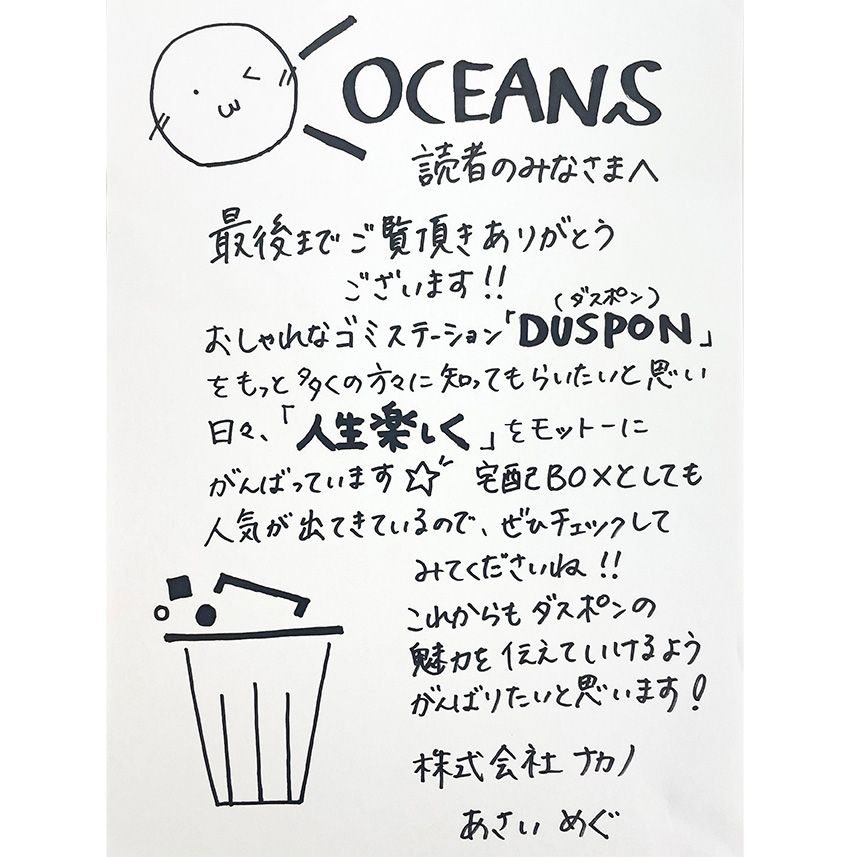 OCEANS
読者のみなさまへ
最後までご覧頂きありがとう
ございます!!
(ダスポン)
おしゃれなゴミステーション「DUSPON」
をもっと多くの方々に知ってもらいたいと思い
日々、「人生楽しく」をモットーに
がんばっています☆ 宅配BOXとしても
人気が出てきているので、ぜひチェックして
みてくださいね!!
これからもダスポンの
魅力を伝えていけるよう
がんばりたいと思います!
株式会社ナカノ
あさい めぐ